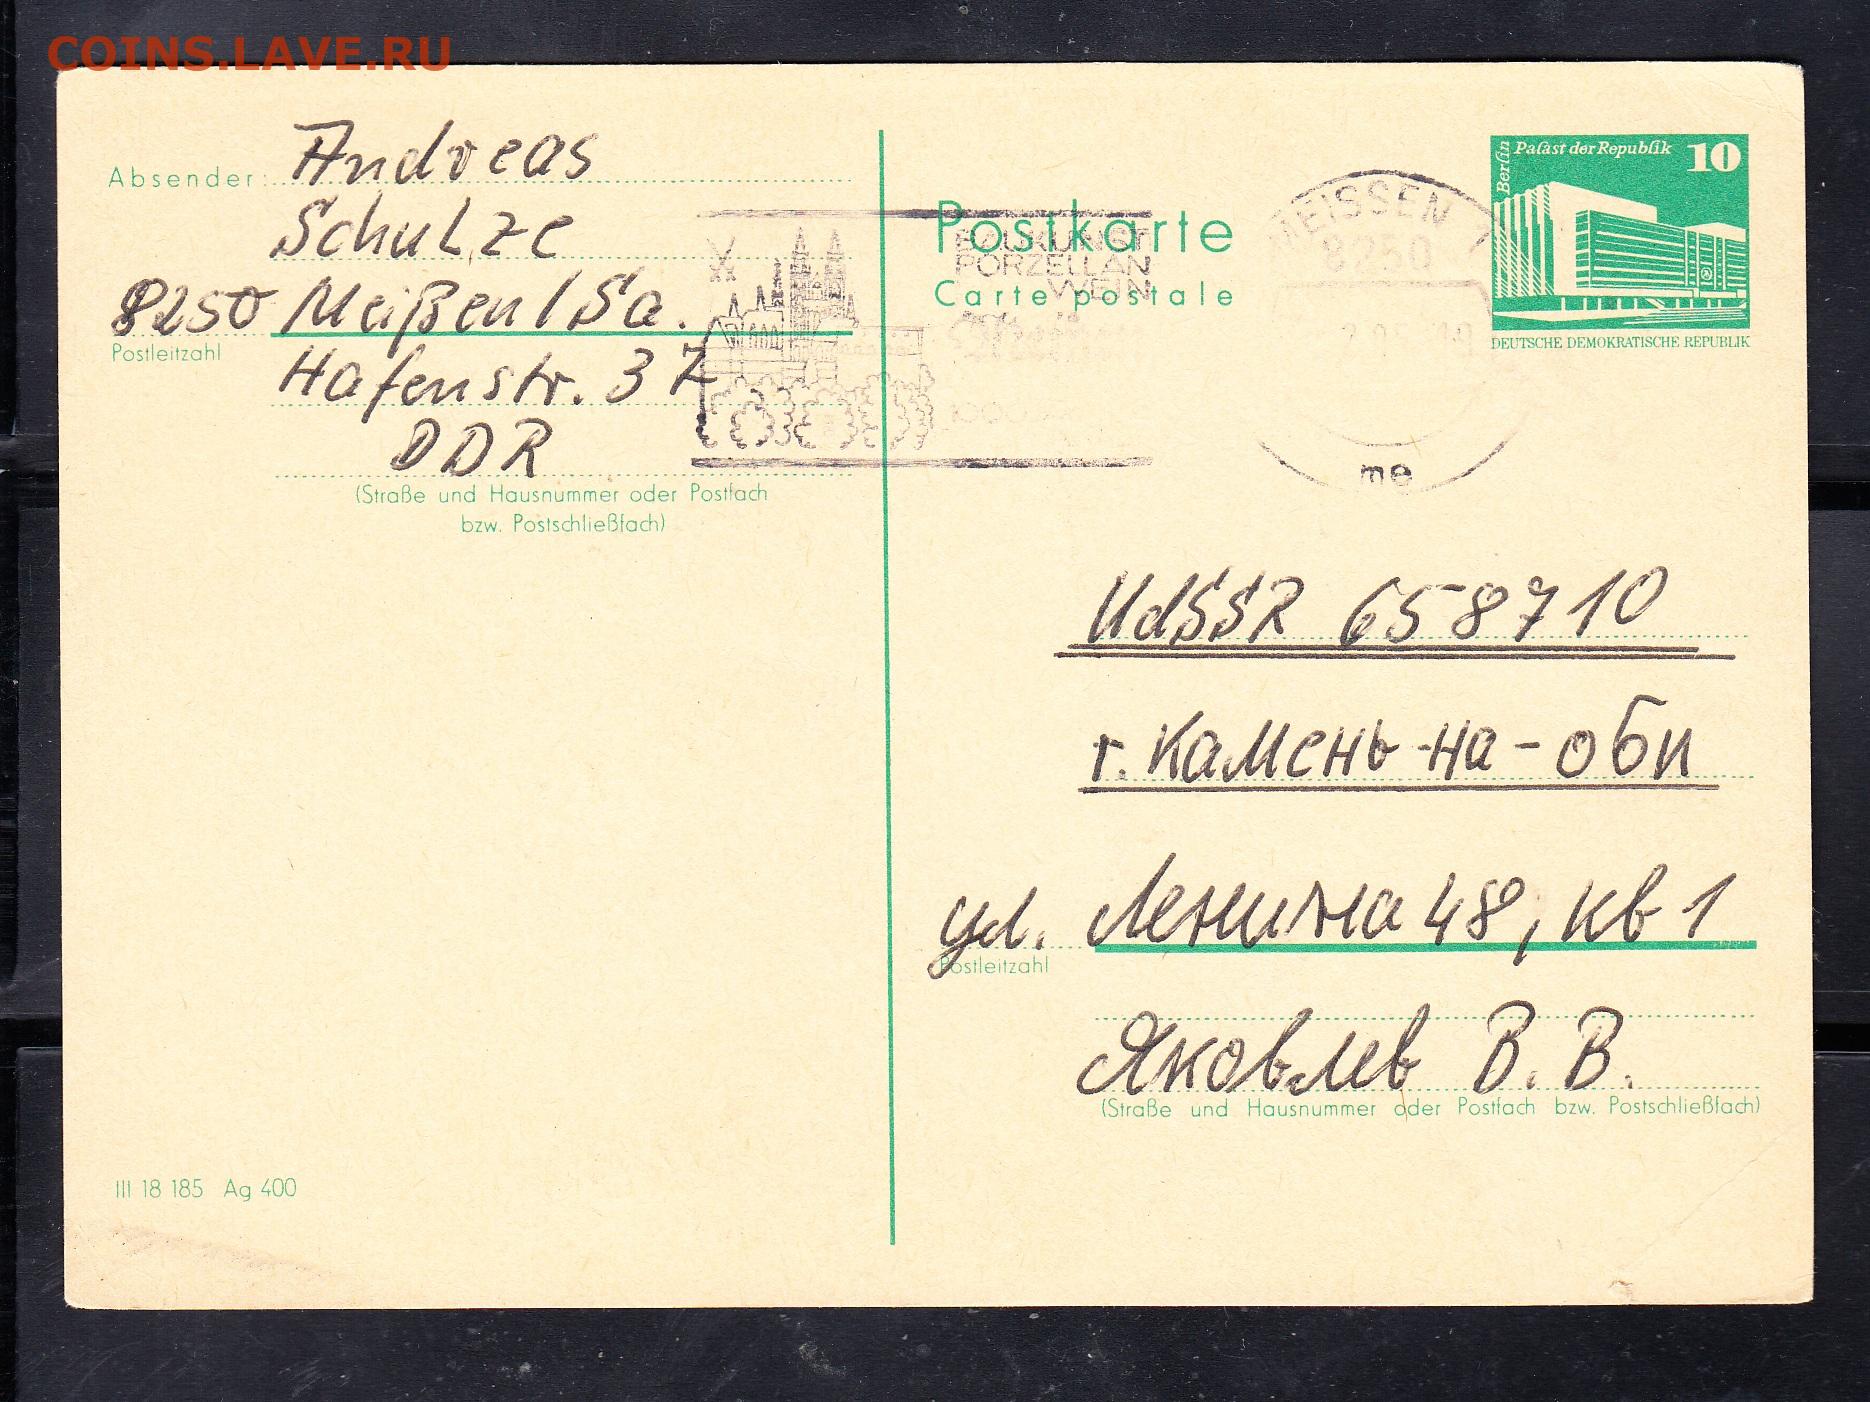 COINS.LAVE.RU
Absender: Andreas
Schulze
8250 Meißen/Sa.
Postleitzahl
Hafenstr. 37
DDR
(Straße und Hausnummer oder Postfach
bzw. Postschließfach)
III 18 185 Ag 400
Postkarte
Carte postale
BAUKUNST
PORZELLAN
WEIN
MEISSEN 1
8250
me
Berlin
Palast der Republik 10
DEUTSCHE DEMOKRATISCHE REPUBLIK
UdSSR 658710
г. Камень-на-оби
ул. Ленина 48, кв 1
Postleitzahl
Яковлев В. В.
(Straße und Hausnummer oder Postfach bzw. Postschließfach)